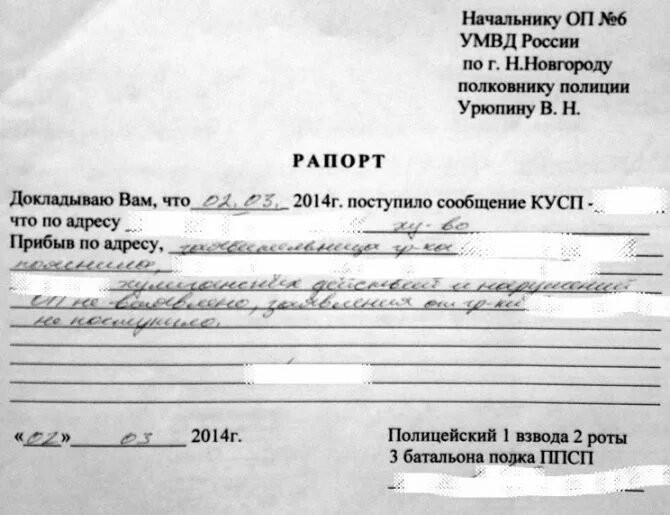 Начальнику ОП №6
УМВД России
по г. Н.Новгороду
полковнику полиции
Урюпину В. Н.
РАПОРТ
Докладываю Вам, что 02.03. 2014г. поступило сообщение КУСП -
что по адресу ху-во
Прибыв по адресу, заявительница гр-ка
пояснила,
хулиганских действий и нарушений
ОП не выявлено, заявления от гр-ки
не поступило.
«02» 03 2014г.
Полицейский 1 взвода 2 роты
3 батальона полка ППСП